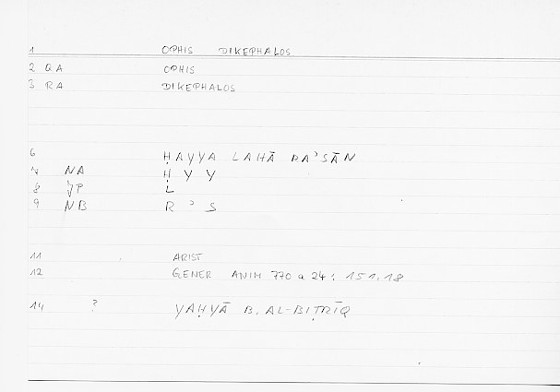 1 OPHIS DIKEPHALOS
2 QA OPHIS
3 RA DIKEPHALOS
6 ḤAYYA LAHĀ RAʾSĀN
7 NA Ḥ Y Y
8 VP L
9 NB R ʾ S
11 ARIST
12 GENER ANIM 770 a 24; 151.18
14 ? YAḤYĀ B. AL-BIṬRĪQ